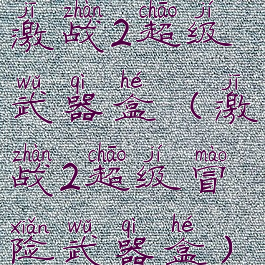 jī zhàn chāo jí
激战2超级
wǔ qì hé jī
武器盒(激
zhàn chāo jí mào
战2超级冒
xiǎn wǔ qì hé
险武器盒)